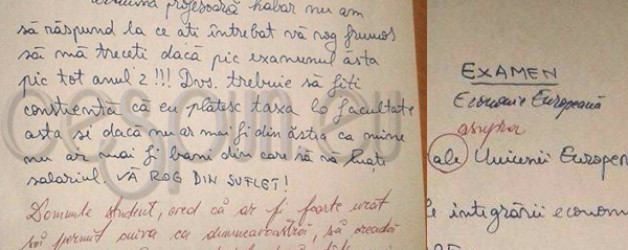 profesoară habar nu am
să răspund la ce ati întrebat vă rog frumos
să mă treceti dacă pic examunul ăsta
pic tot anul 2 !!! Dvs. trebuie să fiti
constientă că eu plătesc taxa la facultate
asta si dacă nu ar mai fi din ăstia ca mine
nu ar mai fi bani din care să vă luati
salariul. VĂ ROG DIN SUFLET!
Domnule student, cred că ar fi foarte urât
să permit cuiva ca dumneavoastră, să creadă
EXAMEN
Economie Europeană
asupra
ale Uniunii Europen
integrării econom